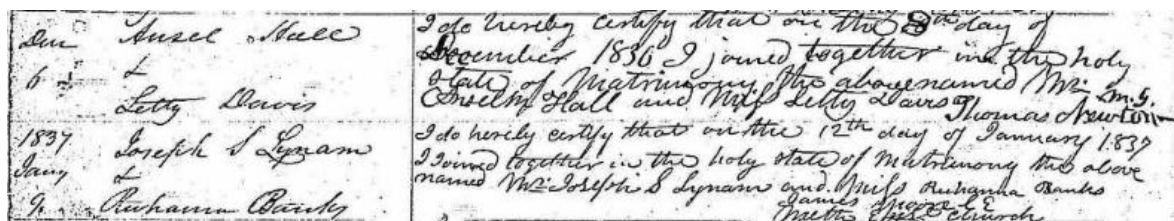 Decm Ansel Hall
6 &
Letty Davis
I do hereby certify that on the 8th day of
December 1836 I joined together in the holy
state of Matrimony the above named Mr
Anselm Hall and Miss Letty Davis
Thomas Newton M.G.
1837 Joseph S Lynam
Jany &
9 Ruhanna Banks
I do hereby certify that on the 12th day of January 1837
I Joined together in the holy state of Matrimony the above
named Mr Joseph S Lynam and Miss Ruhanna Banks
James Moore
Meth Epis Church